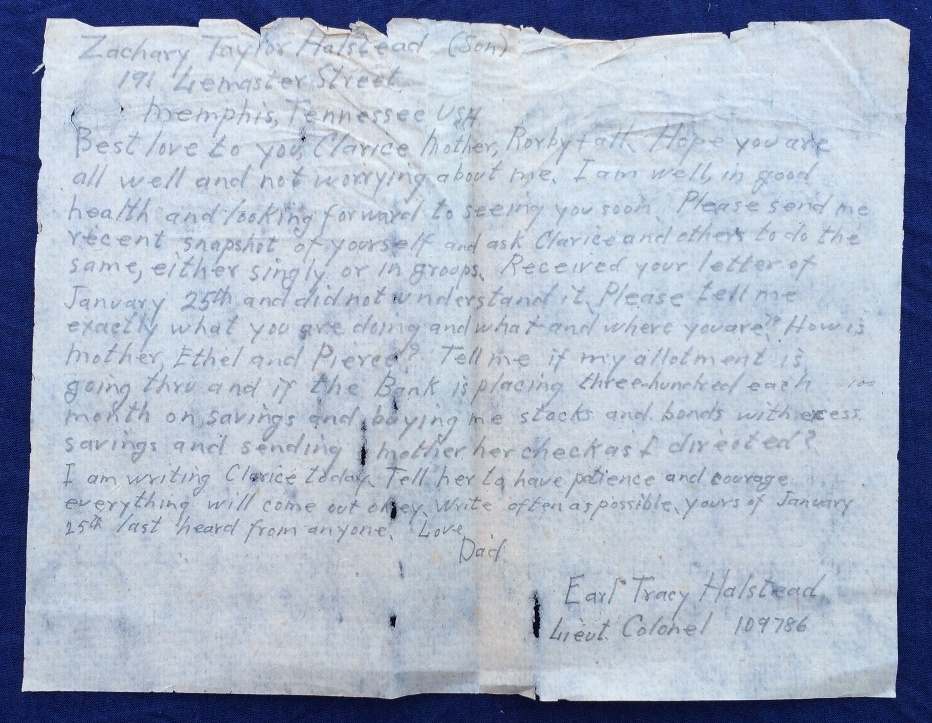 Zachary Taylor Halstead (Son)
191 Lemaster Street.
Memphis, Tennessee USA
Best love to you, Clarice Mother, Rorby + all. Hope you are
all well and not worrying about me. I am well, in good
health and looking forward to seeing you soon. Please send me
recent snapshot of yourself and ask Clarice and others to do the
same, either singly or in groups. Received your letter of
January 25th and did not understand it. Please tell me
exactly what you are doing and what and where you are? How is
mother, Ethel and Pierce? Tell me if my allotment is
going thru and if the Bank is placing three-hundred each 100
month on savings and buying me stocks and bonds with excess
savings and sending mother her check as I directed?
I am writing Clarice today. Tell her to have patience and courage
everything will come out okey. Write often as possible, yours of January
25th last heard from anyone. Love,
Dad.
Earl Tracy Halstead
Lieut. Colonel 109786